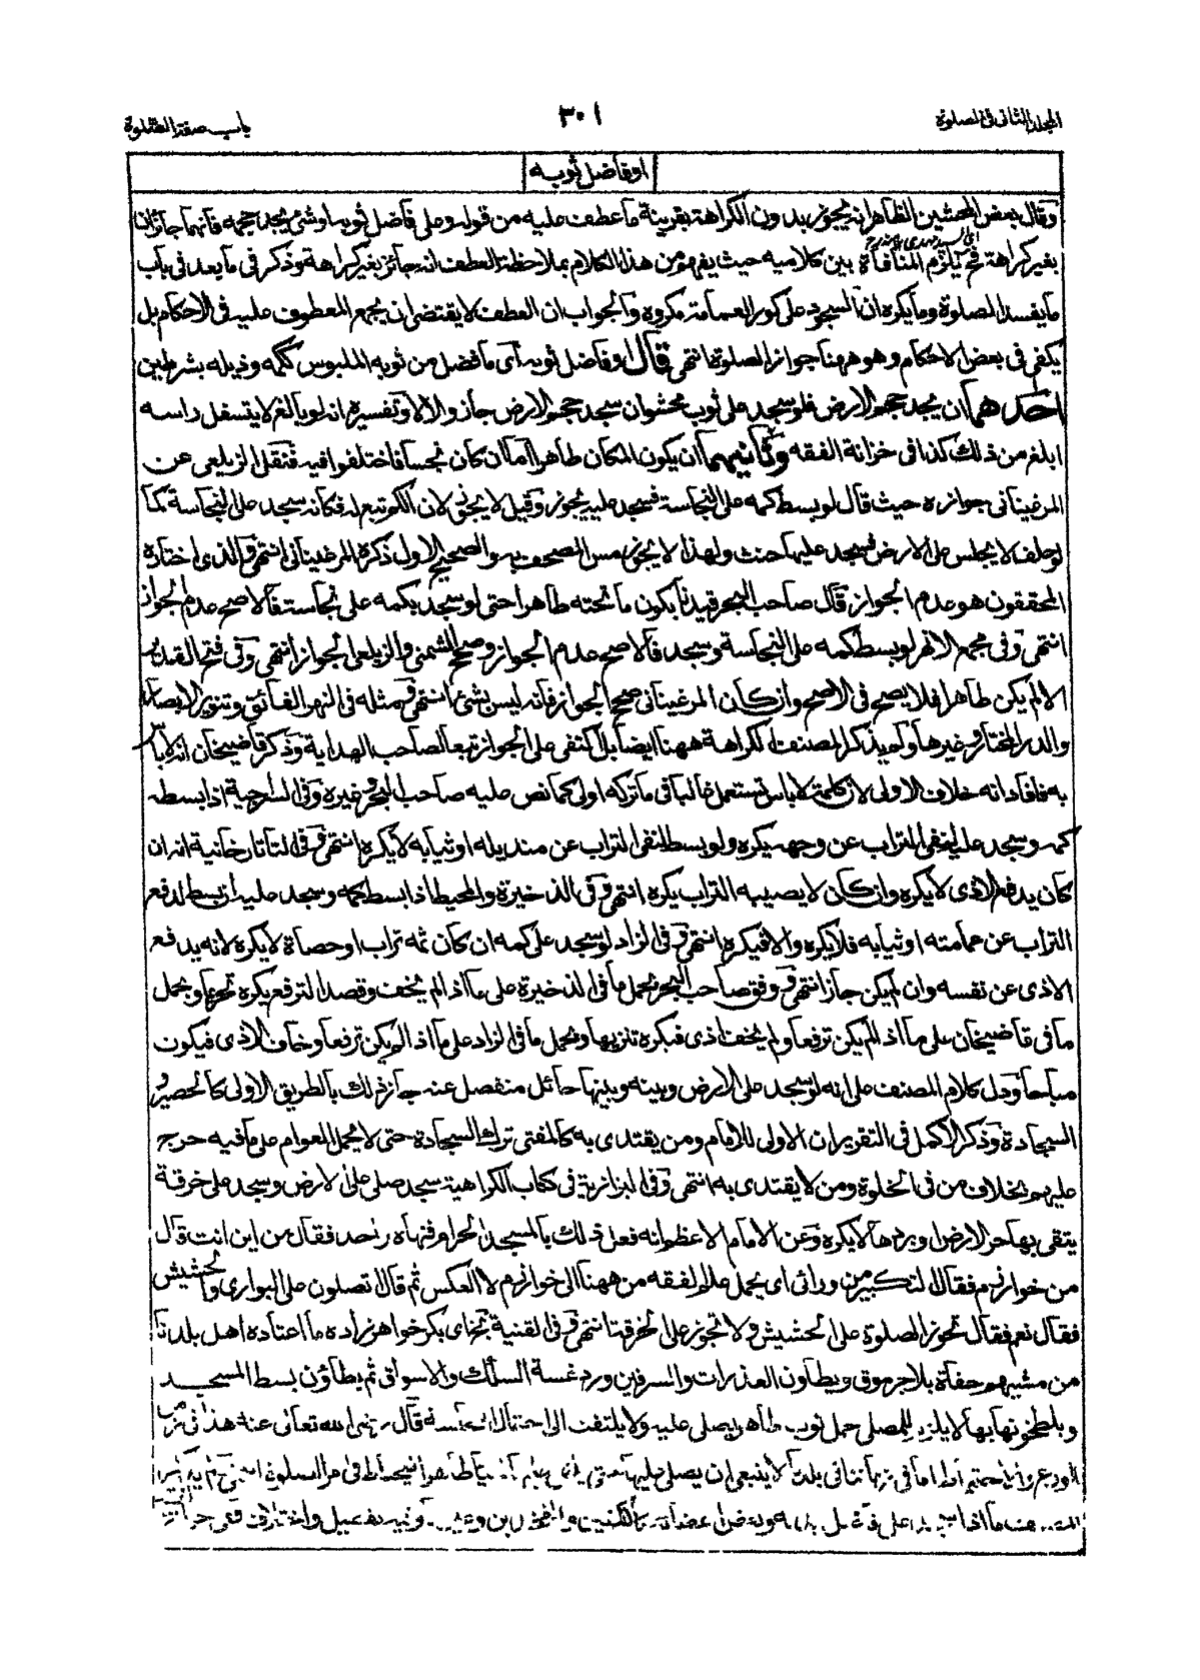 المجلد الثانى فى الصلوة
٣٠١
باب صفة الصلوة
او فاضل ثوبه
وقال بعض المحشين الظاهر انه يجوز بدون الكراهة بقرينة ما عطف عليه من قوله وعلى فاضل ثوبه او شئ يجد حجمه فانهما جائزان
بغير كراهة فح يلزم المنافاة بين كلاميه حيث يفهم من هذا الكلام بملاحظة العطف انه جائز بغير كراهة وذكر فى ما بعد فى باب
ما يفسد الصلوة وما يكره ان السجود على كور العمامة مكروه والجواب ان العطف لا يقتضى ان يجمع المعطوف عليه فى الاحكام بل
يكفى فى بعض الاحكام وهو ههنا جواز الصلوة انتهى قال او فاضل ثوبه اى ما فضل من ثوبه الملبوس ككمه وذيله بشرطين
احدهما ان يجد حجم الارض فلو سجد على ثوب محشو ان سجد حجم الارض جاز والا لا وتفسيره انه لو بالغ لا يتسفل راسه
ابلغ من ذلك كذا فى خزانة الفقه وثانيهما ان يكون المكان طاهرا اما ان كان نجسا فاختلفوا فيه فنقل الزيلعى عن
المرغينانى جوازه حيث قال لو بسط كمه على النجاسة فسجد عليه يجوز وقيل لا يجوز لان الكم تبع له فكانه سجد على النجاسة كما
لو حلف لا يجلس على الارض فسجد عليها حنث ولهذا لا يجوز مس المصحف به والصحيح الاول ذكره المرغينانى انتهى والذى اختاره
المحققون هو عدم الجواز قال صاحب البحر قيدنا بكون ما تحته طاهرا حتى لو سجد بكمه على نجاسة فالاصح عدم الجواز
انتهى وفى مجمع الانهر لو بسط كمه على النجاسة وسجد فالاصح عدم الجواز وصحح الشمنى والزيلعى الجواز انتهى وفى فتح القدير
الا لم يكن طاهرا فلا يصح فى الاصح وان كان المرغينانى صحح الجواز فانه ليس بشئ انتهى ومثله فى النهر الفائق وتنوير الابصار
والدر المختار وغيرها ولم يذكر المصنف الكراهة ههنا ايضا بل اكتفى على الجواز تبعا لصاحب الهداية وذكر قاضيخان انه لا باس
به فافاد انه خلاف الاولى لان كلمة لا باس تستعمل غالبا فى ما تركه اولى كما نص عليه صاحب البحر وغيره وفى السراجية اذا بسط
كمه وسجد عليه لنفى التراب عن وجهه يكره ولو بسط لنفى التراب عن منديله او ثيابه لا يكره انتهى وفى التاتارخانية انه ان
كان يدفع الاذى لا يكره وان كان لا يصيبه التراب يكره انتهى وفى الذخيرة والمحيط اذا بسط كمه وسجد عليه ان بسط لدفع
التراب عن عمامته او ثيابه فلا يكره والا فيكره انتهى وفى الزاد لو سجد على كمه ان كان ثمه تراب او حصاة لا يكره لانه يدفع
الاذى عن نفسه وان لم يكن جاز انتهى ووفق صاحب البحر بحمل ما فى الذخيرة على ما اذا لم يخف وقصد الترفع يكره تحريما ويحمل
ما فى قاضيخان على ما اذا لم يكن ترفعا ولم يخف اذى فيكره تنزيها ويحمل ما فى الزاد على ما اذا لم يكن ترفعا وخاف الاذى فيكون
مباحا ودل كلام المصنف على انه لو سجد على الارض وبينه وبينها حائل منفصل عنه جاز ذلك بالطريق الاولى كالحصير و
السجادة وذكر الاكمل فى التقرير ان الاولى للامام ومن يقتدى به كالمفتى ترك السجادة حتى لا يحمل العوام على ما فيه حرج
عليهم بخلاف من فى الخلوة ومن لا يقتدى به انتهى وفى البزازية فى كتاب الكراهية سجد صلى على الارض وسجد على خرقة
يتقى بها حر الارض او بردها لا يكره وعن الامام الاعظم انه فعل ذلك بالمسجد الحرام فنهاه واحد فقال من اين انت قال
من خوارزم فقال الله اكبر من ورائى اى يحمل علم الفقه من ههنا الى خوارزم لا العكس ثم قال اتصلون على البوارى والحشيش
فقال نعم فقال تجوز الصلوة على الحشيش ولا تجوز على الخرقة انتهى وفى القنية بخ اى بكر خواهر زاده ما اعتاده اهل بلدنا
من مشيهم حفاة بلا جرموق ويطأون العذرات والسرقين وردغة السكك والاسواق ثم يطأون بسط المسجد
ويلطخونها بها لا يلزم للمصلى حمل ثوب طاهر يصلى عليه ولا يلتفت الى احتمال النجاسة قال رضى الله تعالى عنه هذا
اما فى زماننا فى بلدنا لا ينبغى ان يصلى عليها